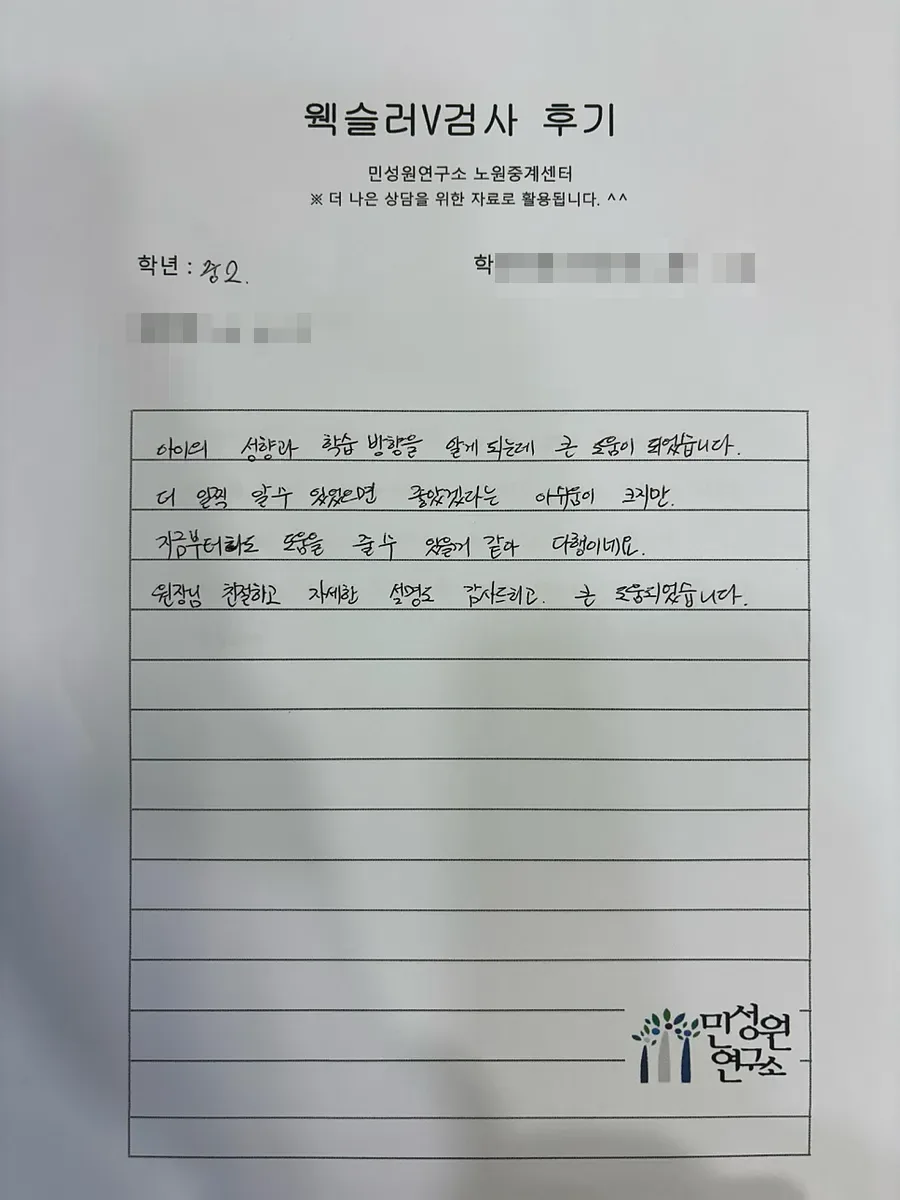 웩슬러V검사 후기
민성원연구소 노원중계센터
※ 더 나은 상담을 위한 자료로 활용됩니다. ^^
학년 : 중2. 학
아이의 성향과 학습 방향을 알게 되는데 큰 도움이 되었습니다.
더 일찍 알 수 있었으면 좋았겠다라는 아쉬움이 크지만.
지금부터라도 도움을 줄 수 있을거 같아 다행이네요.
원장님 친절하고 자세한 설명도 감사드리고. 큰 도움되었습니다.
민성원
연구소